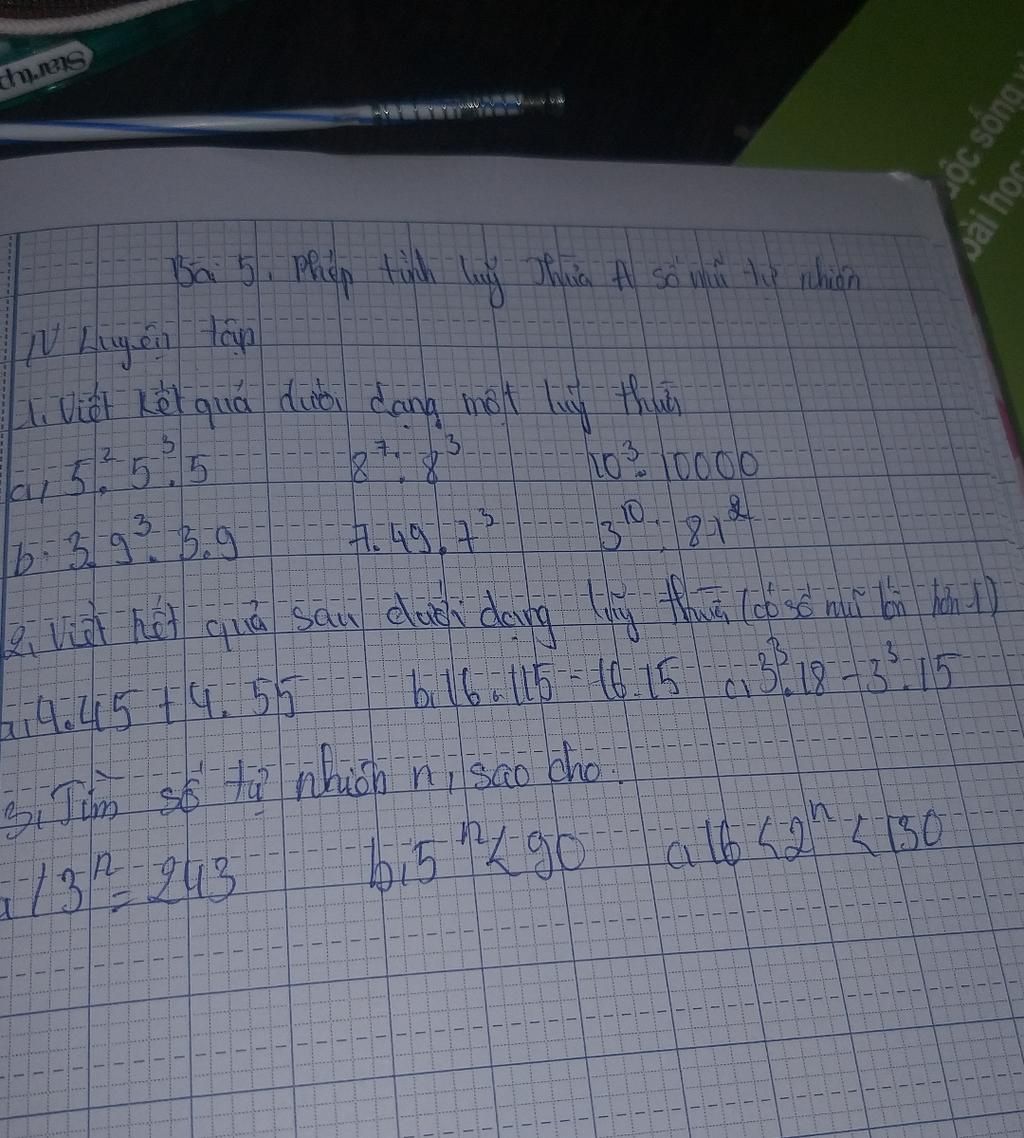 Start up
ộc sống
bài học
Bài 5. Phép tính luỹ thừa số mũ tự nhiên
IV Luyện tập
1, Viết kết quả dưới dạng một luỹ thừa
a, 5². 5³. 5 8⁷: 8³ 10³. 10000
b. 3. 9³. 3. 9 7. 49. 7³ 3¹⁰: 81²
2, Viết kết quả sau dưới dạng luỹ thừa (có số mũ lớn hơn 1)
a, 4.45 + 4. 55 b, 16. 115 - 16.15 c, 3³.18 - 3³.15
3, Tìm số tự nhiên n, sao cho:
a, 3ⁿ = 243 b, 5ⁿ < 90 a 16 < 2ⁿ < 130